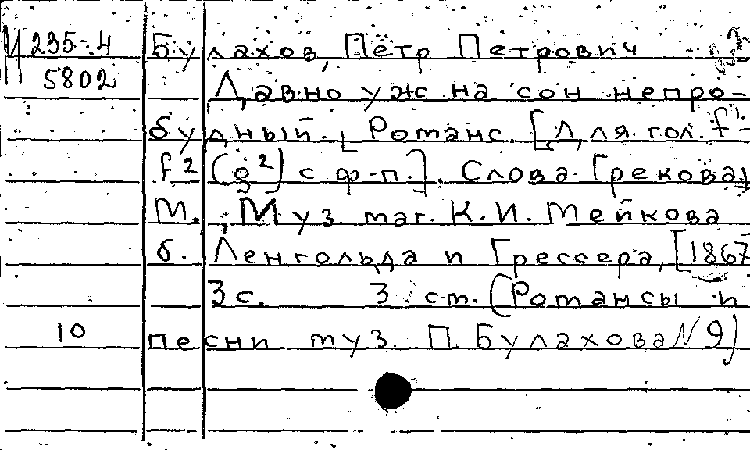 Ц 235-4 Булахов, Пётр Петрович
5802 Давно уж на сон непро-
будный. Романс. [Для гол. f'-
f2 (g2) с ф-п.]. Слова Грекова,
М., Муз. маг. К.И. Мейкова
б. Ленгольда и Грессера, [1867
3 с. 3 см. (Романсы и
10 песни муз. П. Булахова N 9)